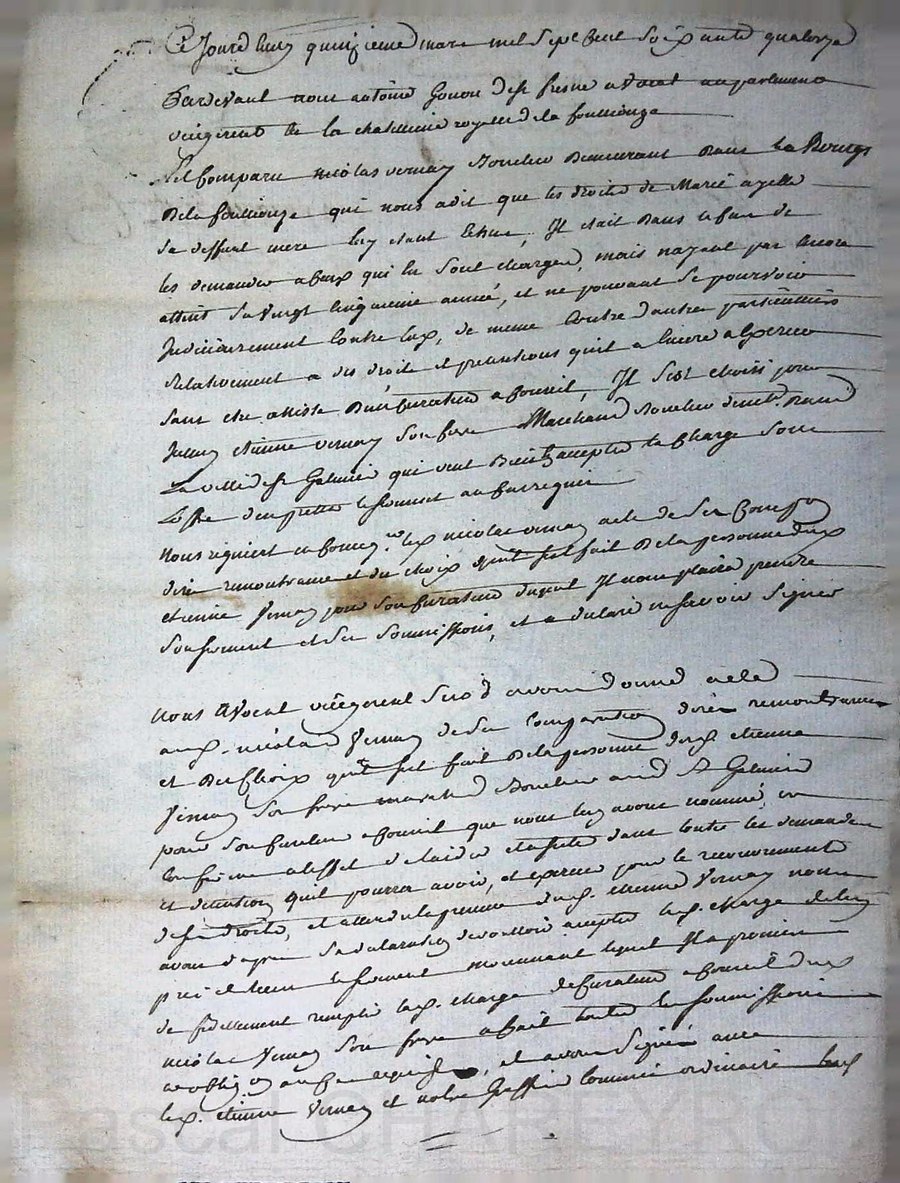 Ce Jourd huy quinzieme mars mil sept cent soixante quatorze
Pardevant nous antoine Gonon de st fresne avocat au parlement
vicegerent de la chatellenie royalle de la fouillouse
Est Comparu nicolas vernay Boucher Demeurant Dans le Bourg
De la fouillouse qui nous a dit que les droits de Marie
sa deffunt mere luy etant échus, Il etait Dans le cas de
les demander a ceux qui en sont chargés, mais nayant pas encore
atteint sa vingt cinquieme année, et ne pouvant se pourvoir
Judiciairement contre eux, de meme Contre d'autres particuliers
Relativement a des droits et pretentions quil a encore a exercer
sans etre assisté D'un Curateur a Conseil, Il s'est choisi pour
etienne vernay son frere Marchand Boucher demt. Dans
La ville de st Galmier qui veut Bien accepter la Charge sous
L'offre d'en pretter le serment au cas requis
nous requiert led. nicolas vernay acte de ses
dire remontrance et du choix quil fait De la personne dud.
etienne Vernay pour son Curateur duquel Il nous plaira prendre
son serment et ses soumissions, et a declaré ne savoir signer
nous avocat vicegerent susd avons donné acte
aud. nicolas Vernay de sa Comparution dires remontrances
et Du Choix quil fait De la personne dud. etienne
Vernay son frere marchand Boucher aud St Galmier
pour son Curateur a Conseil que nous luy avons nommé, en
a l'effet de l'aider et assister dans toutes les demandes
et quil pourra avoir, et exercer pour le recouvrement
de ses droits, et attendu la presence dud. etienne Vernay nous
avons d'apres sa declaration de vouloir accepter lad. charge de luy
pris et reçu le serment moyennant lequel Il a promis
de fidellement remplir lad. charge de Curateur a Conseil dud
nicolas Vernay son frere a fait toutes les soumissions
au cas requises, et avons signé avec
led. etienne Vernay et notre Greffier Commis ordinaire